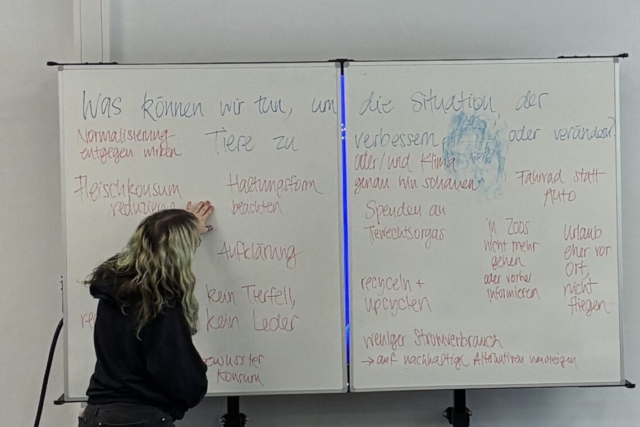 Was können wir tun, um die Situation der
Tiere zu verbessern oder verändern
Normalisierung
entgegen wirken
oder/und Klima
genau hin schauen
Fahrrad statt
Auto
Fleischkonsum
reduzieren
Haltungsform
beachten
Spenden an
Tierrechtsorgas
in Zoos
nicht mehr
gehen
oder vorher
informieren
Urlaub
eher vor
Ort,
nicht
fliegen
Aufklärung
kein Tierfell,
kein Leder
recyceln +
upcyclen
re
ewusster
Konsum
weniger Stromverbrauch
→ auf nachhaltige Alternativen umsteigen